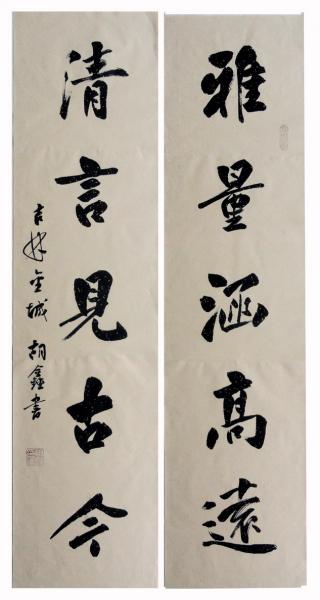 雅量涵高遠
清言見古今
吉林金城 胡鑫書